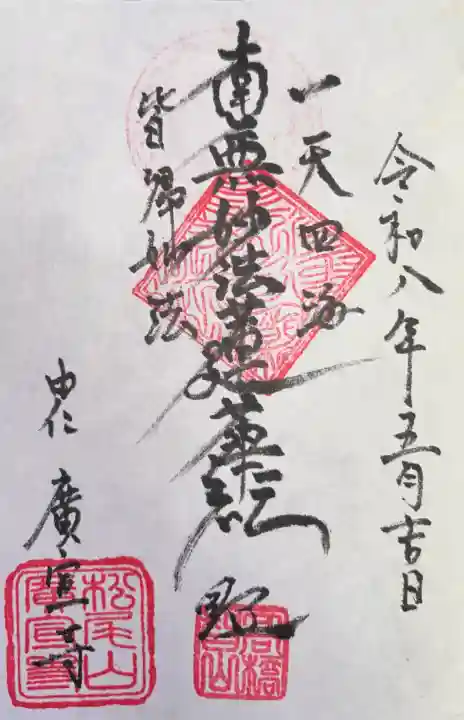 令和八年五月吉日
一天四海
南無妙法蓮華経
皆帰妙法
由仁 廣宣寺
松尾山
廣宣寺